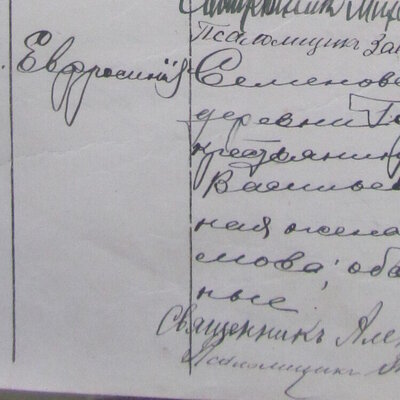 Священникъ
Псаломщикъ
Евфросинія
Семенов
деревни
крестьянин
Василье
ная жена
мова; оба
ные
Священникъ Але
Псаломщикъ